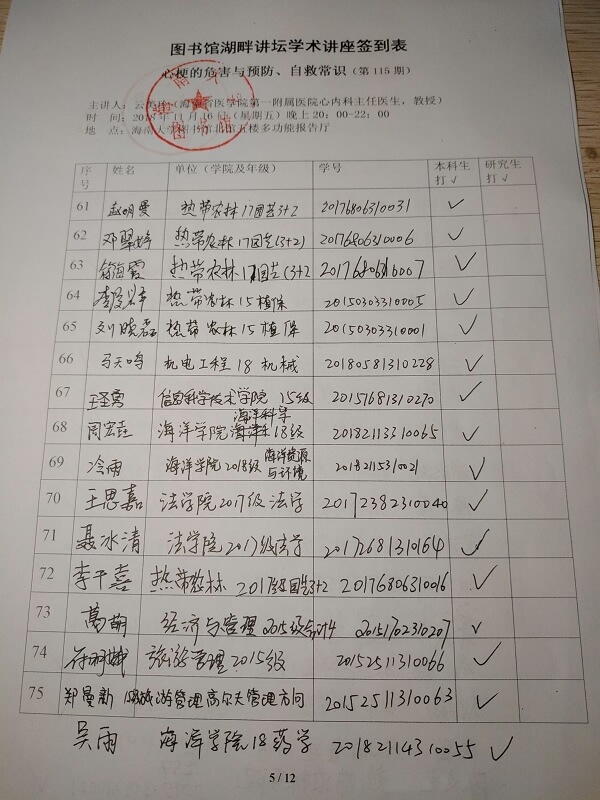 图书馆湖畔讲坛学术讲座签到表
心梗的危害与预防、自救常识（第 115 期）
主讲人：云美玲（海南省医学院第一附属医院心内科主任医生，教授）
时 间：2018年11月16日（星期五）晚上20：00-22：00
地 点：海南大学图书馆北馆五楼多功能报告厅
序号 姓名 单位（学院及年级） 学号 本科生打√ 研究生打√
61 赵明曼 热带农林17园艺3+2 20176806310031 √
62 邓翠婷 热带农林17园艺(3+2) 20176806310006 √
63 海霞 热带农林17园艺(3+2 20176806310007 √
64 李 热带农林15植保 20150303310005 √
65 刘晓磊 热带农林15植保 20150303310001 √
66 马天鸣 机电工程18机械 20180581310228 √
67 王圣勇 信息科学技术学院 15级 20157681310270 √
68 周宏 海洋学院 海洋科学 18级 20182113310065 √
69 冷雨 海洋学院2018级 海洋资源与环境 20182115310021 √
70 王思嘉 法学院2017级法学 20172382310040 √
71 聂冰清 法学院2017级法学 20172681310164 √
72 李千喜 热带农林 2017级园艺3+2 20176806310016 √
73 葛萌 经济与管理2015级会计4 20151702310207 √
74 符 旅游管理2015级 20152511310066 √
75 郑曼新 15级旅游管理高尔夫管理方向 20152511310063 √
吴雨 海洋学院18药学 20182114310055 √
5 / 12